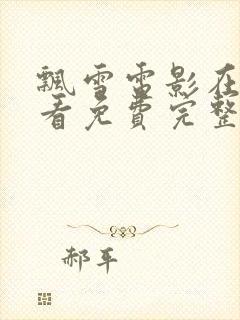 飘雪雷影在
看免费完整
郝平